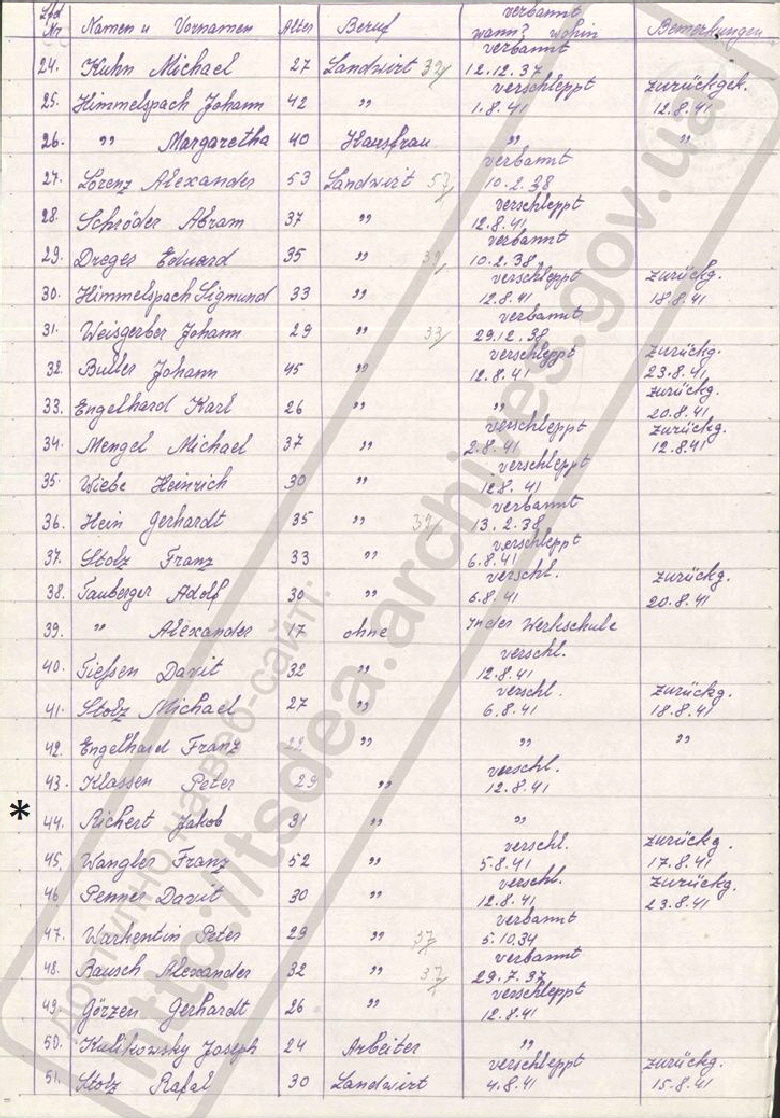 Lfd Nr. Namen u Vornamen Alter Beruf verbannt wann? wohin Bemerkungen
24. Kuhn Michael 27 Landwirt 37/ verbannt 12.12.37
25. Himmelspach Johann 42 " verschleppt 1.8.41 zurückgek. 12.8.41
26. " Margaretha 40 Hausfrau " "
27. Lorenz Alexander 53 Landwirt 57/ verbannt 10.2.38
28. Schröder Abram 37 " verschleppt 12.8.41
29. Dreges Eduard 35 " verbannt 10.2.38
30. Himmelspach Sigmund 33 " verschleppt 12.8.41 zurückg. 18.8.41
31. Weisgerber Johann 29 " 33/ verbannt 29.12.38
32. Buller Johann 45 " verschleppt 12.8.41 zurückg. 23.8.41
33. Engelhard Karl 26 " " zurückg. 20.8.41
34. Mengel Michael 37 " verschleppt 2.8.41 zurückg. 12.8.41
35. Wiebe Heinrich 30 " verschleppt 12.8.41
36. Hein Gerhardt 35 " 39/ verbannt 13.2.38
37. Stolz Franz 33 " verschleppt 6.8.41
38. Tauberger Adolf 30 " verschl. 6.8.41 zurückg. 20.8.41
39. " Alexander 17 ohne In der Werkschule
40. Tießen Davit 32 " verschl. 12.8.41
41. Stolz Michael 27 " verschl. 6.8.41 zurückg. 18.8.41
42. Engelhard Franz 22 " " "
43. Klassen Peter 29 " verschl. 12.8.41
* 44. Richert Jakob 31 " "
45. Wangler Franz 52 " verschl. 5.8.41 zurückg. 17.8.41
46 Penner Davit 30 " verschl. 12.8.41 zurückg. 23.8.41
47. Warkentin Peter 29 " 37/ verbannt 5.10.34
48. Bausch Alexander 32 " 37/ verbannt 29.7.37
49. Görzen Gerhardt 26 " verschleppt 12.8.41
50. Kulikowsky Joseph 24 Arbeiter "
51. Stolz Rafal 30 Landwirt verschleppt 4.8.41 zurückg. 15.8.41
http://tsdea.archives.gov.ua